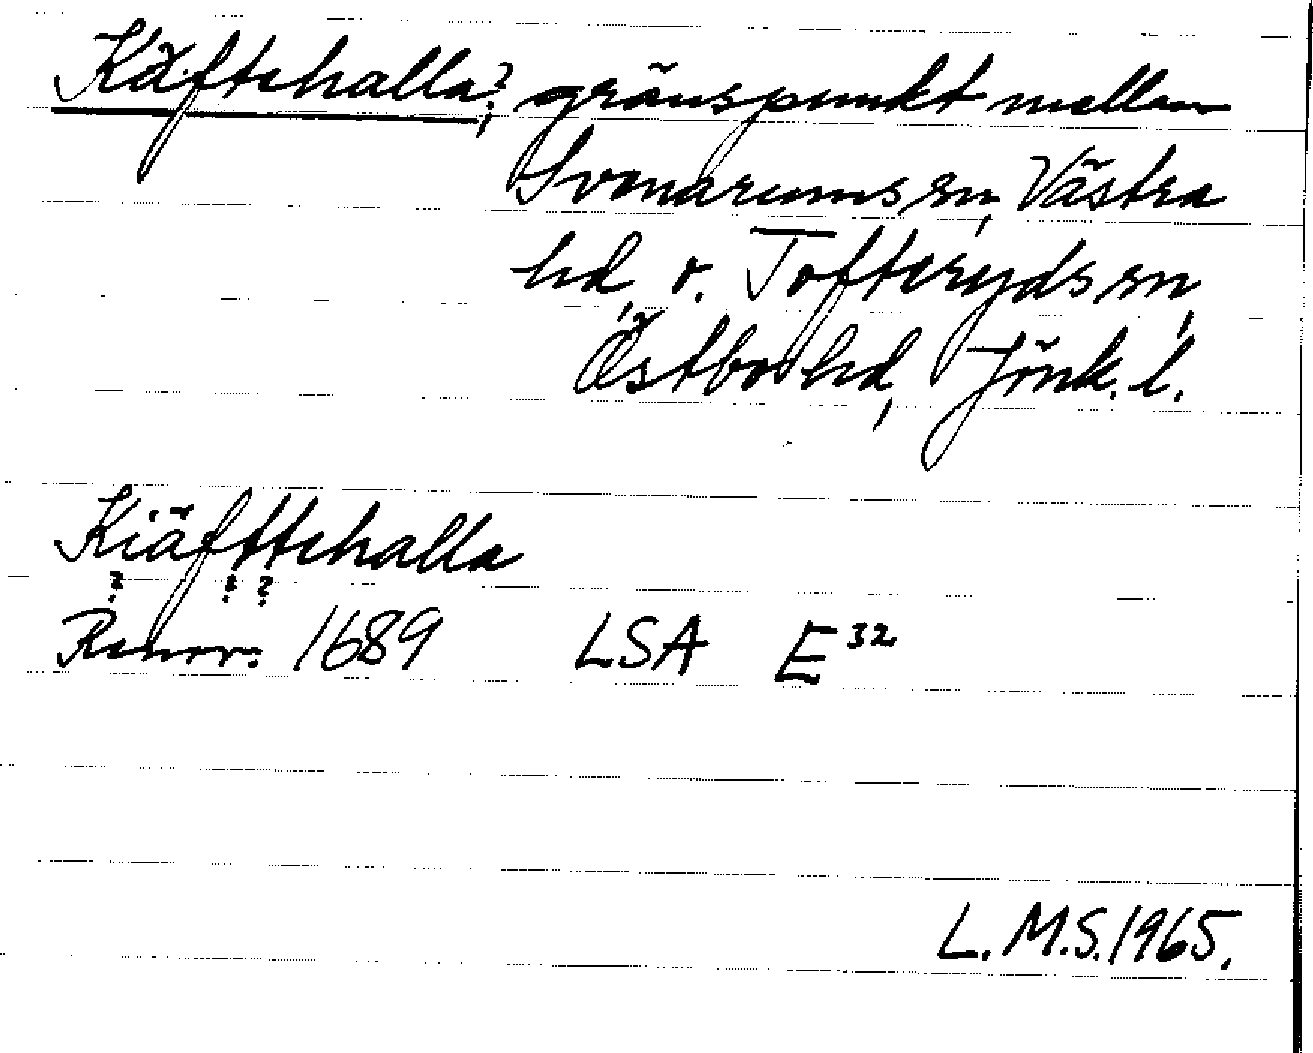 Käftehalla?, gränspunkt mellan
Svenarums sn, Västra
hd, o. Tofteryds sn,
Östbo hd, Jönk. l.
Kiäfttehalla
? ? ?
Renov. 1689 LSA E 32
L.M.S. 1965.